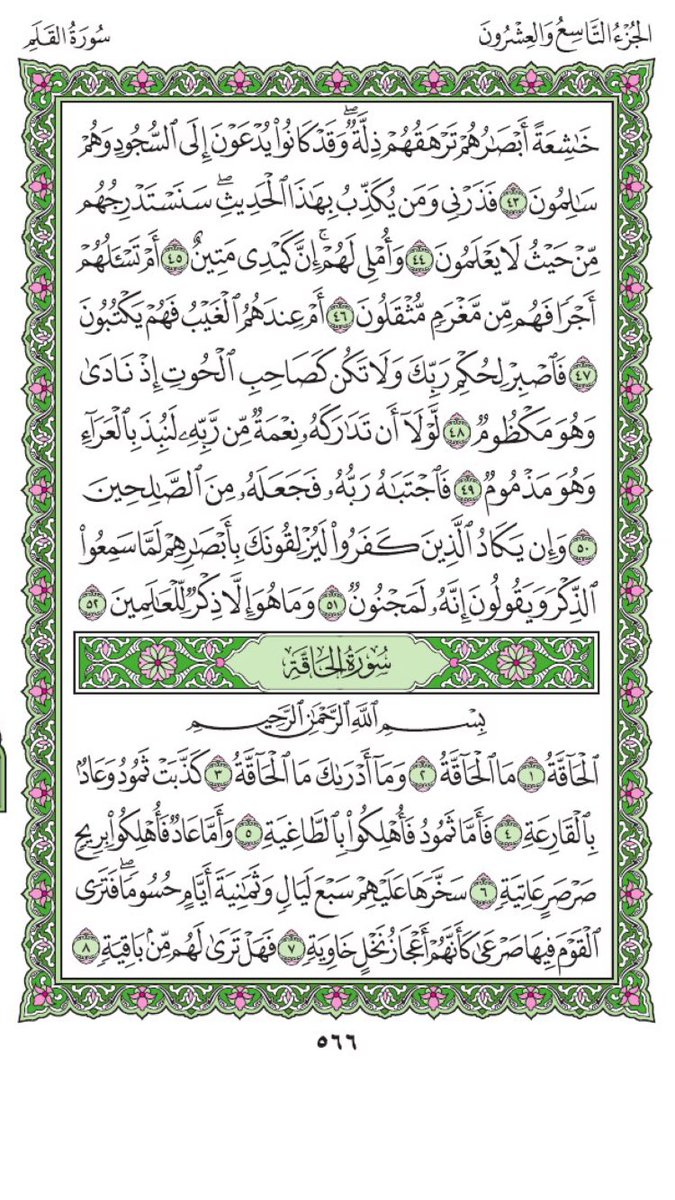 الجُزْءُ التَّاسِعُ وَالعِشْرُونَ
سُورَةُ القَلَمِ
خَٰشِعَةً أَبْصَٰرُهُمْ تَرْهَقُهُمْ ذِلَّةٌۖ وَقَدْ كَانُوا۟ يُدْعَوْنَ إِلَى ٱلسُّجُودِ وَهُمْ
سَٰلِمُونَ ٤٣ فَذَرْنِى وَمَن يُكَذِّبُ بِهَٰذَا ٱلْحَدِيثِۖ سَنَسْتَدْرِجُهُم
مِّنْ حَيْثُ لَا يَعْلَمُونَ ٤٤ وَأُمْلِى لَهُمْۚ إِنَّ كَيْدِى مَتِينٌ ٤٥ أَمْ تَسْـَٔلُهُمْ
أَجْرًا فَهُم مِّن مَّغْرَمٍ مُّثْقَلُونَ ٤٦ أَمْ عِندَهُمُ ٱلْغَيْبُ فَهُمْ يَكْتُبُونَ
٤٧ فَٱصْبِرْ لِحُكْمِ رَبِّكَ وَلَا تَكُن كَصَاحِبِ ٱلْحُوتِ إِذْ نَادَىٰ
وَهُوَ مَكْظُومٌ ٤٨ لَّوْلَآ أَن تَدَٰرَكَهُۥ نِعْمَةٌ مِّن رَّبِّهِۦ لَنُبِذَ بِٱلْعَرَآءِ
وَهُوَ مَذْمُومٌ ٤٩ فَٱجْتَبَٰهُ رَبُّهُۥ فَجَعَلَهُۥ مِنَ ٱلصَّٰلِحِينَ
٥٠ وَإِن يَكَادُ ٱلَّذِينَ كَفَرُوا۟ لَيُزْلِقُونَكَ بِأَبْصَٰرِهِمْ لَمَّا سَمِعُوا۟
ٱلذِّكْرَ وَيَقُولُونَ إِنَّهُۥ لَمَجْنُونٌ ٥١ وَمَا هُوَ إِلَّا ذِكْرٌ لِّلْعَٰلَمِينَ ٥٢
سُورَةُ الحَاقَّةِ
بِسْمِ ٱللَّهِ ٱلرَّحْمَٰنِ ٱلرَّحِيمِ
ٱلْحَآقَّةُ ١ مَا ٱلْحَآقَّةُ ٢ وَمَآ أَدْرَىٰكَ مَا ٱلْحَآقَّةُ ٣ كَذَّبَتْ ثَمُودُ وَعَادٌۢ
بِٱلْقَارِعَةِ ٤ فَأَمَّا ثَمُودُ فَأُهْلِكُوا۟ بِٱلطَّاغِيَةِ ٥ وَأَمَّا عَادٌ فَأُهْلِكُوا۟ بِرِيحٍ
صَرْصَرٍ عَاتِيَةٍ ٦ سَخَّرَهَا عَلَيْهِمْ سَبْعَ لَيَالٍ وَثَمَٰنِيَةَ أَيَّامٍ حُسُومًاۖ فَتَرَى
ٱلْقَوْمَ فِيهَا صَرْعَىٰ كَأَنَّهُمْ أَعْجَازُ نَخْلٍ خَاوِيَةٍ ٧ فَهَلْ تَرَىٰ لَهُم مِّنۢ بَاقِيَةٍ ٨
٥٦٦